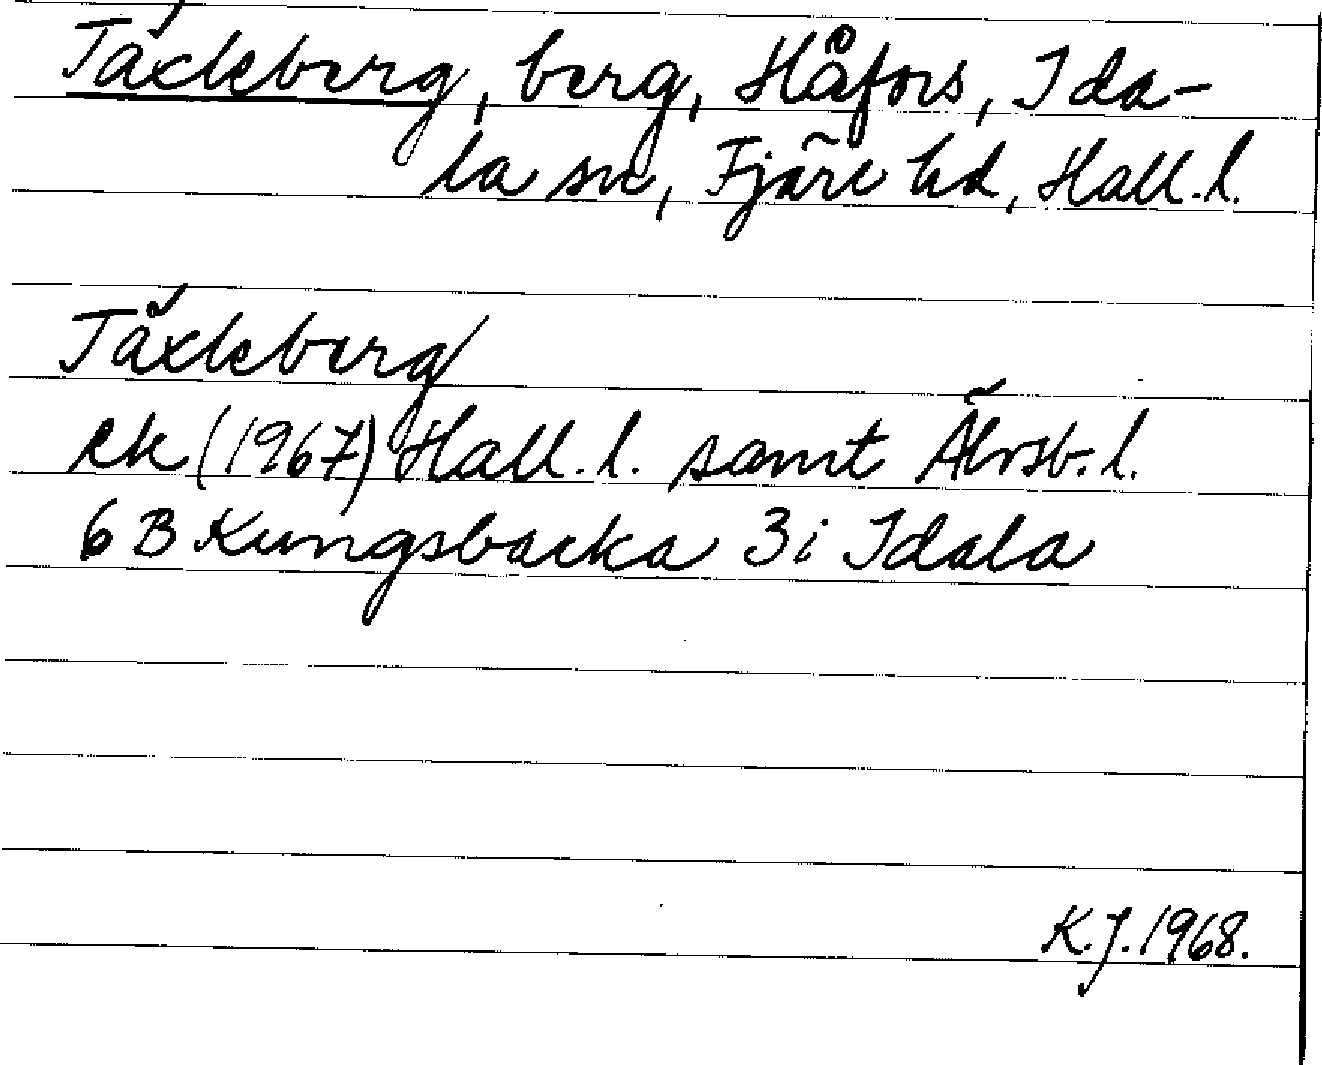 Täxleberg, berg, Håfors, Ida-
la sn, Fjäre hd, Hall.l.
Täxleberg
ek (1967) Hall.l. samt Älvsb.l.
6B Kungsbacka 3i Idala
K.J.1968.